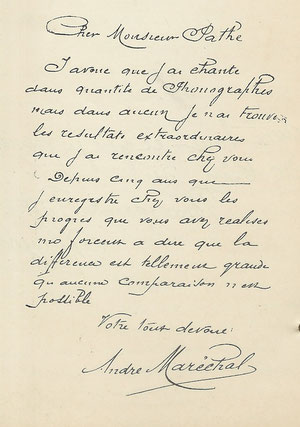 Cher Monsieur Pathe
J avoue que j ai chante
dans quantite de Phonographes
mais dans aucun je n ai trouve
les resultats extraordinaires
que j ai rencontre chez vous
Depuis cinq ans que
j enregistre chez vous les
progres que vous avez realises
me forcent a dire que la
difference est tellement grande
qu aucune comparaison n est
possible
Votre tout devoue:
Andre Maréchal